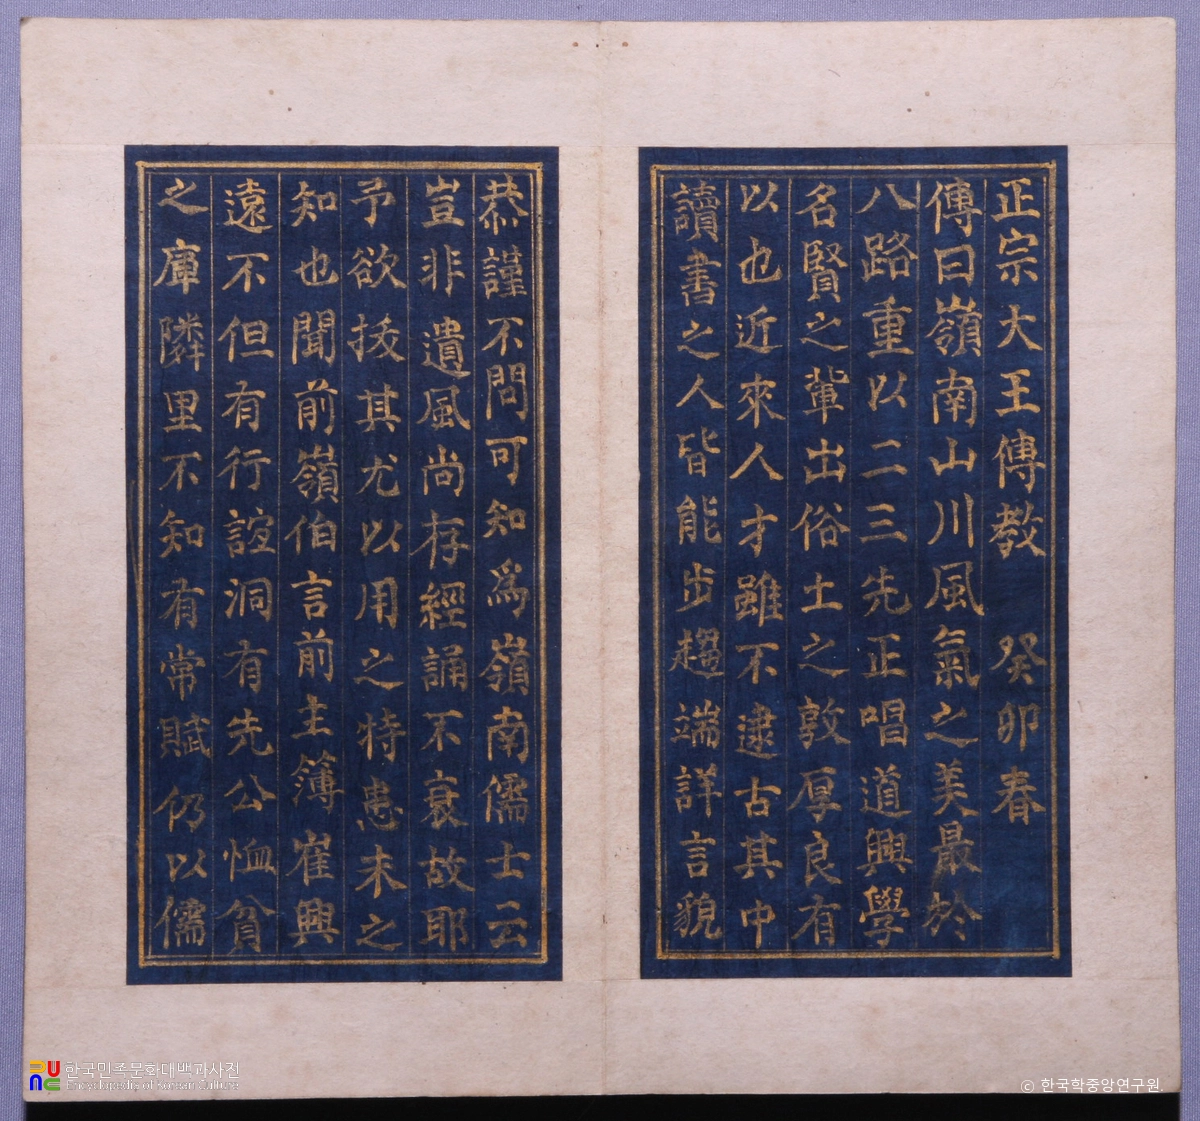 正宗大王傳教 癸卯春
傳曰嶺南山川風氣之美最於
八路重以二三先正唱道興學
名賢之輩出俗土之敦厚良有
以也近來人才雖不逮古其中
讀書之人皆能步趨端詳言貌
恭謹不問可知爲嶺南儒士云
豈非遺風尚存經誦不衰故耶
予欲拔其尤以用之特患未之
知也聞前嶺伯言前主簿崔興
遠不但有行誼洞有先公恤貧
之庫隣里不知有常賦仍以儒
한국민족문화대백과사전
Encyclopedia of Korean Culture
ⓒ 한국학중앙연구원.